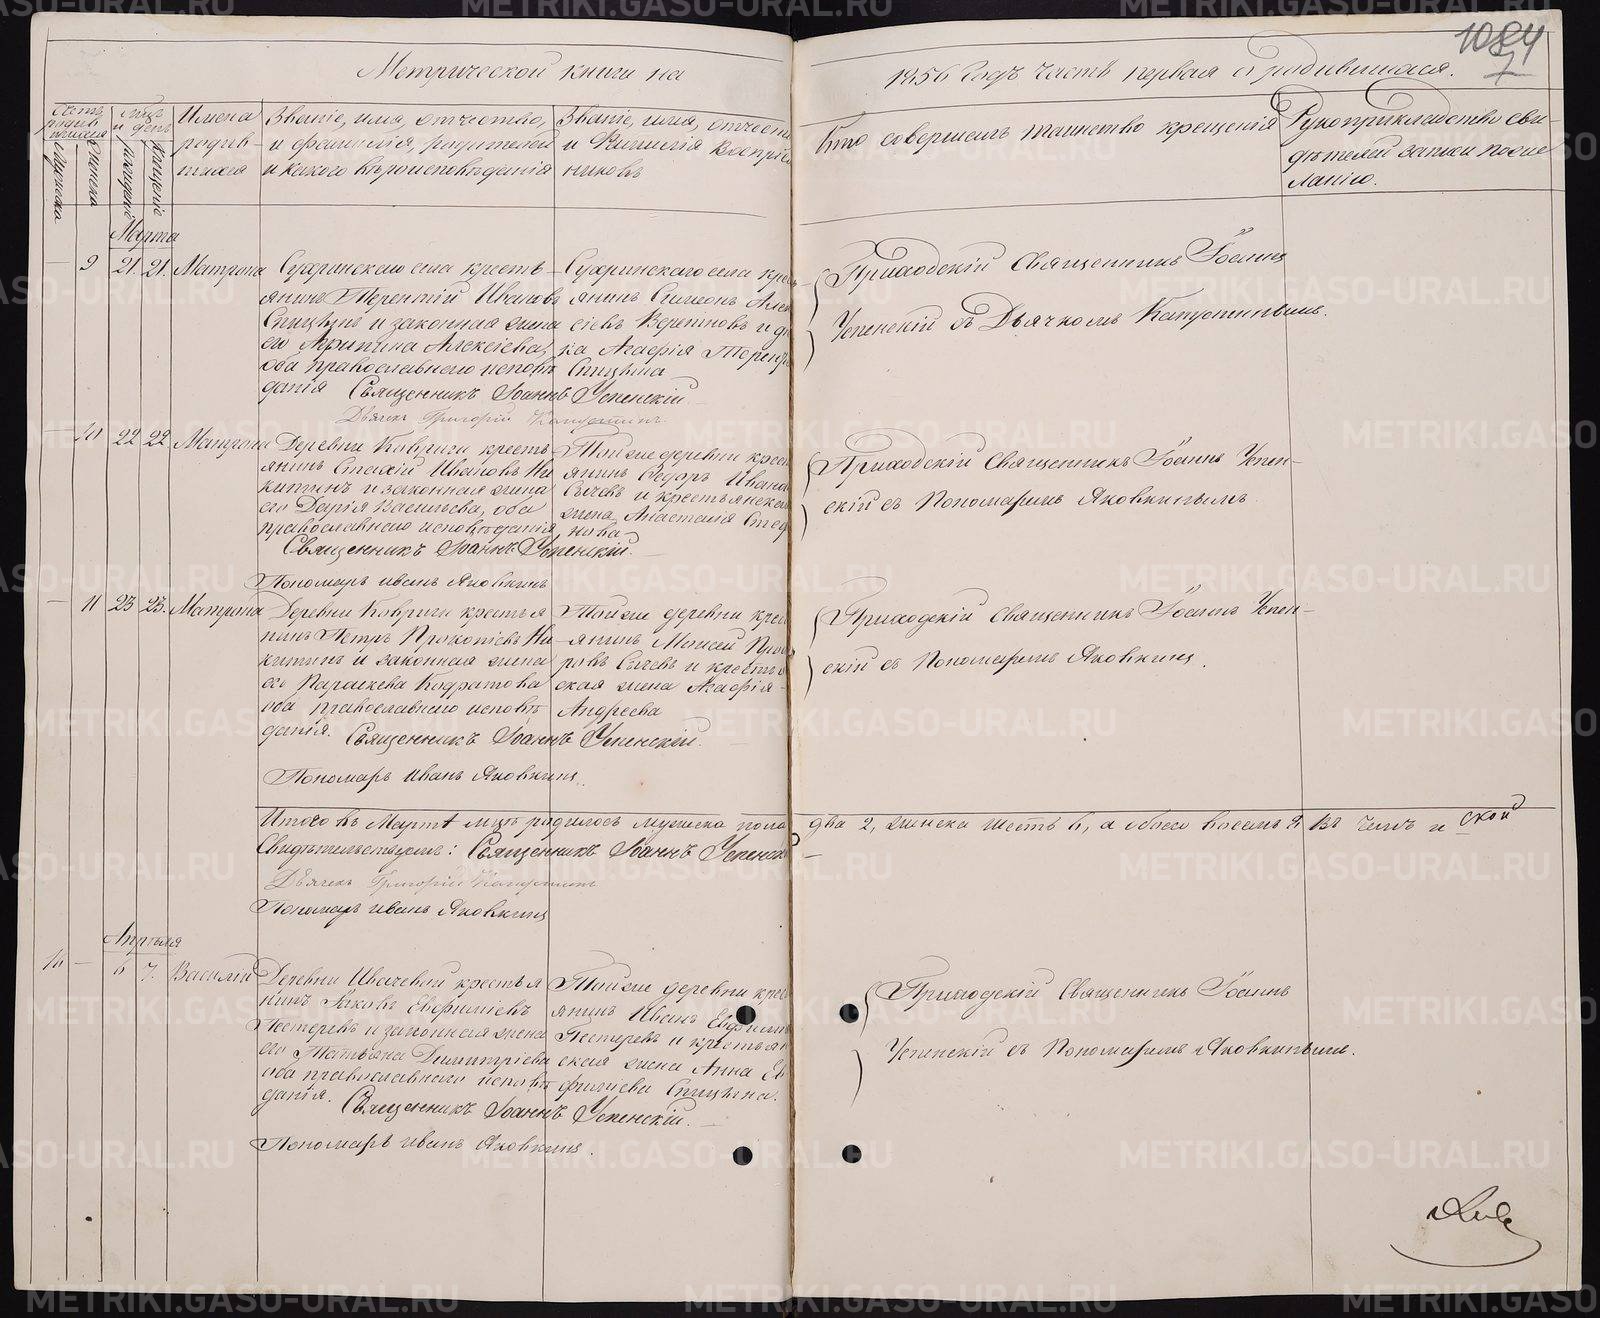 Метрической книги на 1856 годъ часть первая о родившихся.
1084
Имена родив-
шихся
Званіе, имя, отчество,
и фамилія, родителей
и какого вѣроисповѣданія
Званіе, имя, отчест
и Фамилія воспріем
никовъ
Кто совершалъ таинство крещенія
Рукоприкладство сви-
дѣтелей записи по же
ланію.
Марта
9 21 21. Матрона
крестъ-
янинъ Терентій Ивановъ
Спицынъ и законная жена
его Агрипина Алексіева,
оба православнаго исповѣ
данія Священникъ Іоаннъ Успенскій
Дьячекъ Григорій Капустинъ
села кре
янинъ Симеонъ
и дѣ
ка Агафія Терент
Спицына
Приходскій Священникъ Іоаннъ
Успенскій съ Дьячкомъ Капустинымъ.
10 22 22 Матрона
Деревни Ковриги крестъ
янинъ Ивановъ Ни
китинъ и законная жена
его Дарія Васильева, оба
православнаго исповѣданія
Священникъ Іоаннъ Успенскій.
Пономарь Иванъ Яковкинъ
Той же деревни крест
янинъ Ѳедоръ Ивано
Сычевъ и крестьянская
жена Анастасія
нова
Приходскій Священникъ Іоаннъ Успен-
скій съ Пономаремъ Яковкинымъ
11 23 23. Матрона
Деревни Ковриги крестья
нинъ Петръ Прокопіевъ Ни
китинъ и законная жена
его Параскева Кодратова
оба православнаго исповѣ
данія. Священникъ Іоаннъ Успенскій.
Пономарь Иванъ Яковкинъ.
Той же деревни крест
янинъ Моисей
ровъ Сычевъ и крестья
ская жена Агафія
Андреева
Приходскій Священникъ Іоаннъ Успен-
скій съ Пономаремъ Яковкинъ.
Итого въ Мартѣ мцѣ родилось мужеска пола два 2, женска шесть 6, а обоего восемь 8
Свидѣтельствуемъ: Священникъ Іоаннъ Успенской
Дьячекъ Григорій Капустинъ
Пономарь Иванъ Яковкинъ
Апрѣля
10 6 7. Василій
Деревни Ивачевой крестья
нинъ Іаковъ Евфиміевъ
Пестеревъ и законная жена
его Татьяна Димитріева
оба православнаго исповѣ
данія. Священникъ Іоаннъ Успенскій.
Пономарь Иванъ Яковкинъ.
Той же деревни крес
янинъ Иванъ Евфим
Пестеревъ и крестьян
ская жена Анна Ев
фиміева Спицына.
Приходскій Священникъ Іоаннъ
Успенскій съ Пономаремъ Яковкинымъ.
METRIKI.GASO-URAL.RU